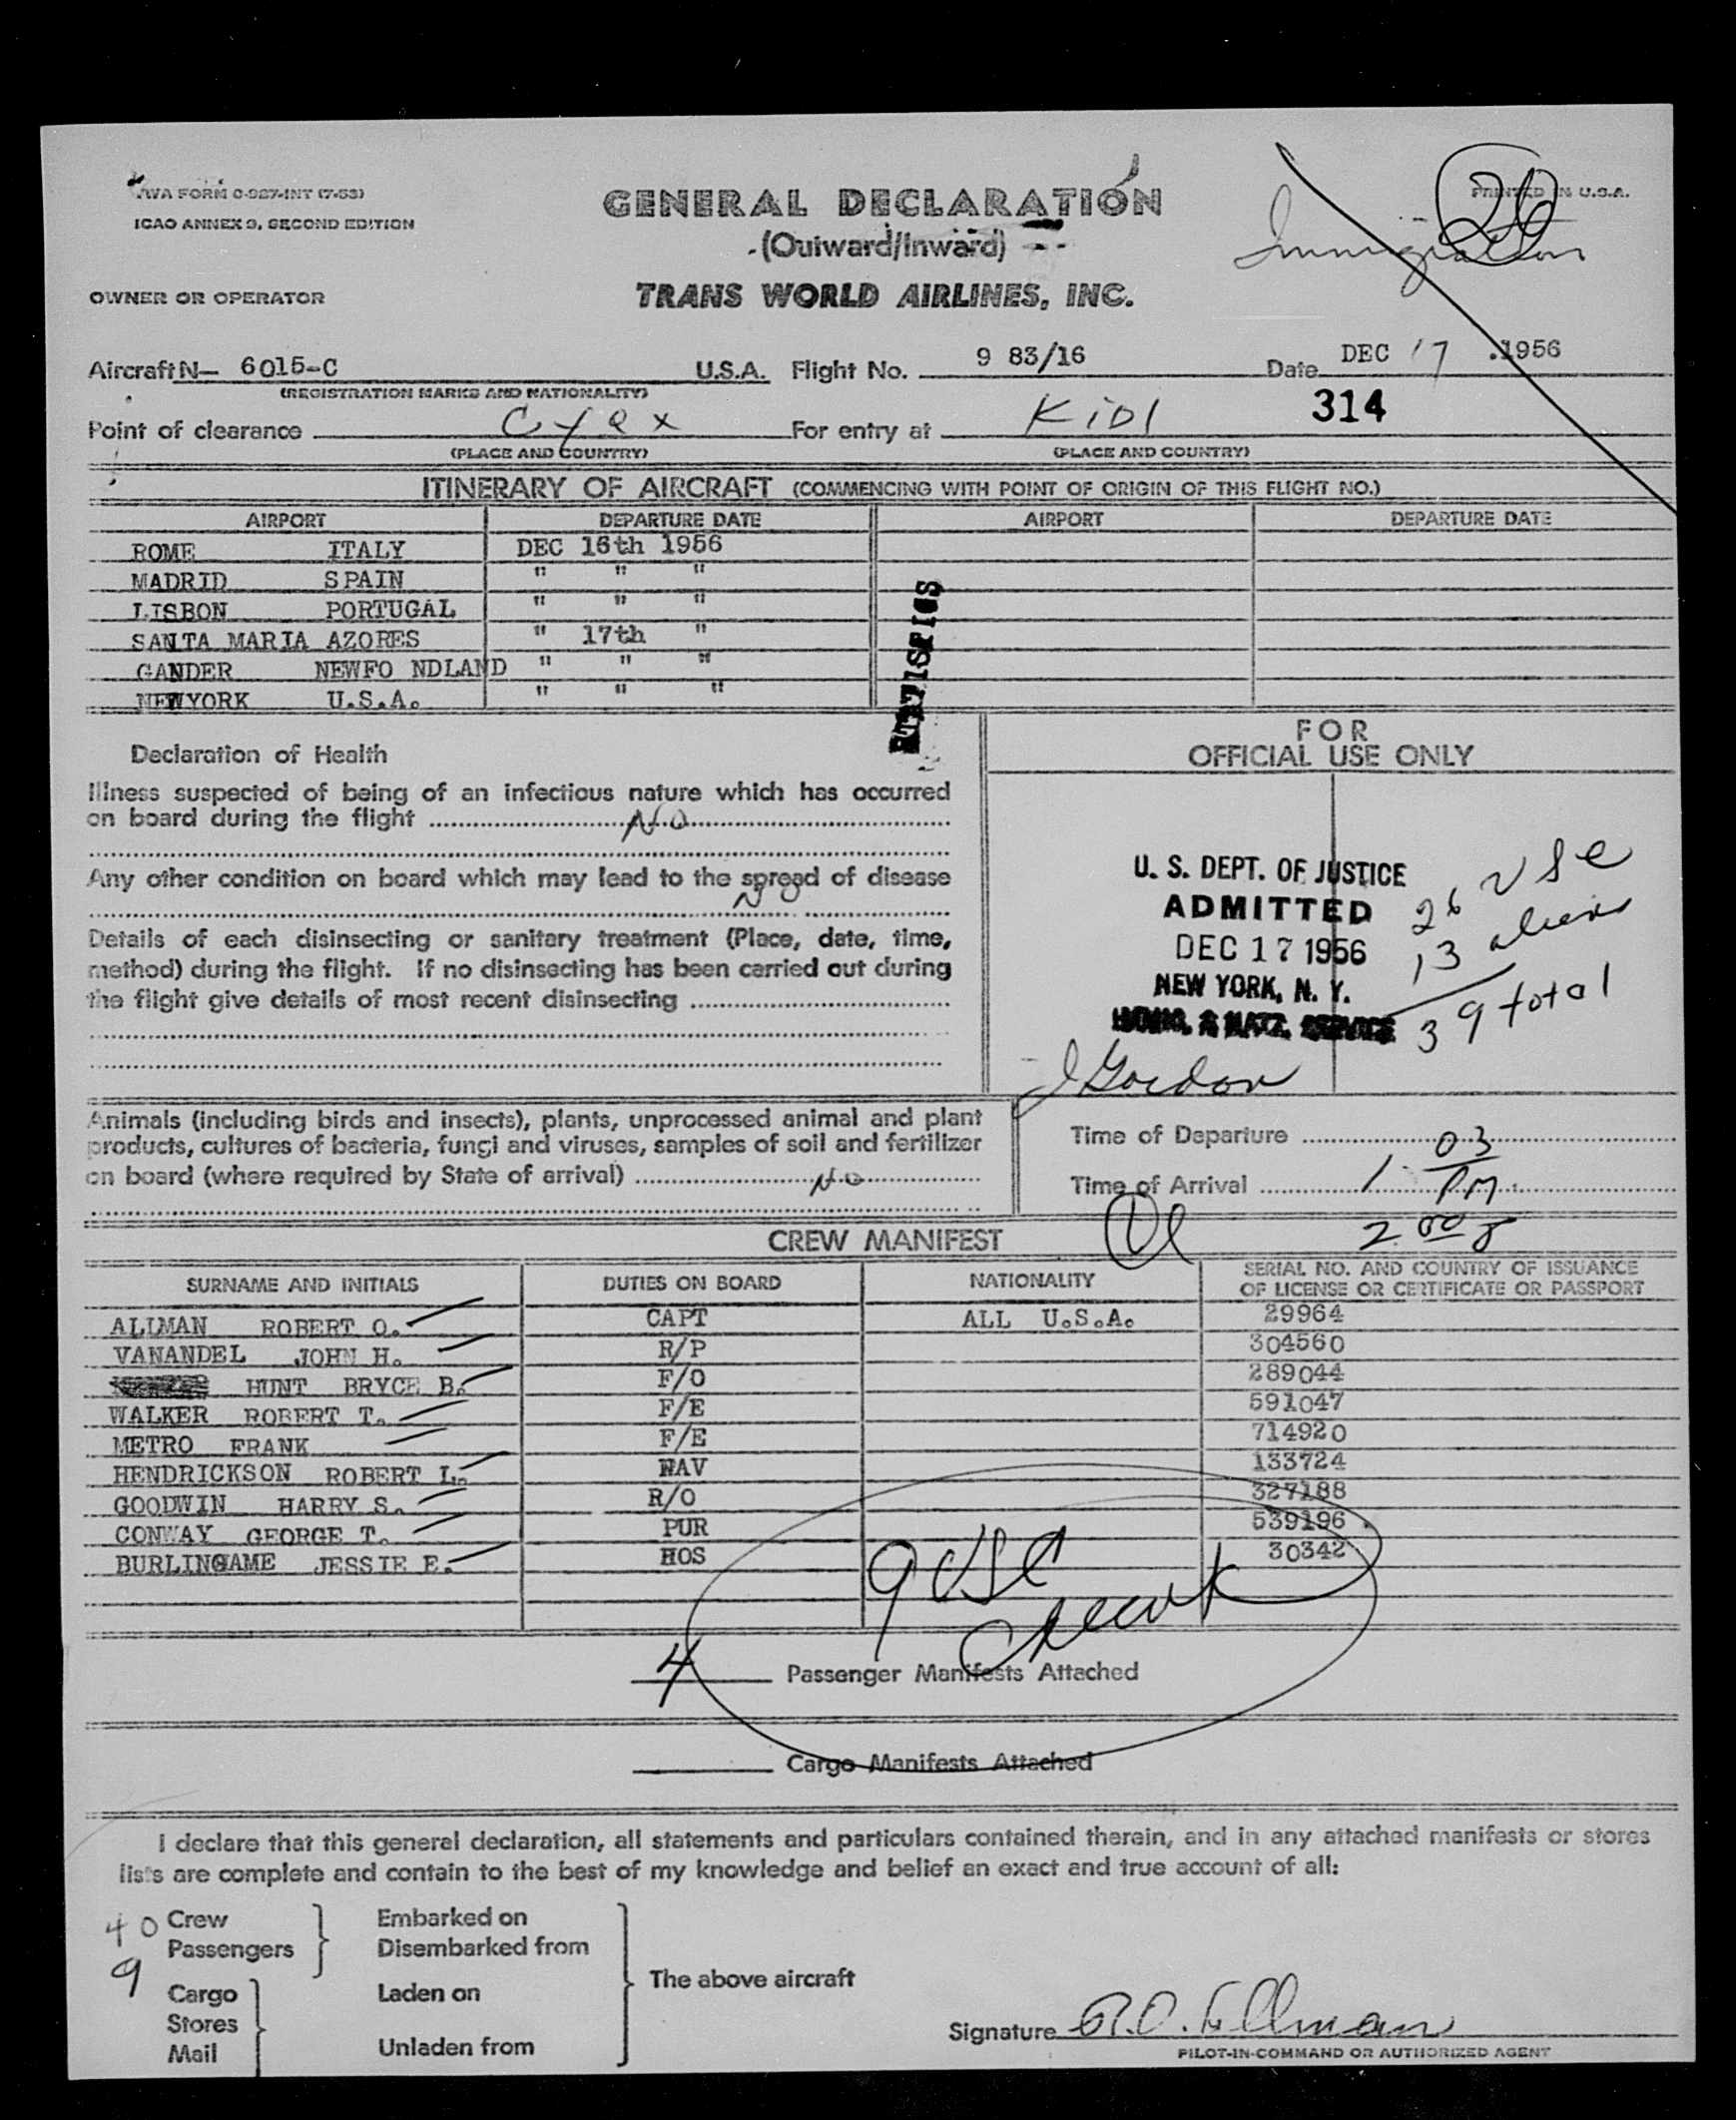 TWA FORM C-927-INT (7-53)
ICAO ANNEX 9, SECOND EDITION
GENERAL DECLARATION
(Outward/Inward)
PRINTED IN U.S.A.
26
Immigration
OWNER OR OPERATOR
TRANS WORLD AIRLINES, INC.
Aircraft N- 6015-C U.S.A. Flight No. 9 83/16 Date DEC 17 .1956
(REGISTRATION MARKS AND NATIONALITY)
314
Point of clearance Cyqx For entry at Kidl
(PLACE AND COUNTRY) (PLACE AND COUNTRY)
ITINERARY OF AIRCRAFT (COMMENCING WITH POINT OF ORIGIN OF THIS FLIGHT NO.)
AIRPORT DEPARTURE DATE AIRPORT DEPARTURE DATE
ROME ITALY DEC 16th 1956
MADRID SPAIN " " "
LISBON PORTUGAL " " "
SANTA MARIA AZORES " 17th "
GANDER NEWFO NDLAND " " "
NEWYORK U.S.A. " " "
STATISTICS
Declaration of Health
Illness suspected of being of an infectious nature which has occurred
on board during the flight No
Any other condition on board which may lead to the spread of disease
No
Details of each disinsecting or sanitary treatment (Place, date, time,
method) during the flight. If no disinsecting has been carried out during
the flight give details of most recent disinsecting
FOR
OFFICIAL USE ONLY
U. S. DEPT. OF JUSTICE
ADMITTED
DEC 17 1956
NEW YORK, N. Y.
IMMIG. & NATZ. SERVICE
26 USC
13 aliens
39 total
J Gordon
Animals (including birds and insects), plants, unprocessed animal and plant
products, cultures of bacteria, fungi and viruses, samples of soil and fertilizer
on board (where required by State of arrival) No
Time of Departure
Time of Arrival 1 03 PM
2 00
CREW MANIFEST
SURNAME AND INITIALS DUTIES ON BOARD NATIONALITY SERIAL NO. AND COUNTRY OF ISSUANCE
OF LICENSE OR CERTIFICATE OR PASSPORT
ALLMAN ROBERT O. CAPT ALL U.S.A. 29964
VANANDEL JOHN H. R/P 304560
HUNT BRYCE B. F/O 289044
WALKER ROBERT T. F/E 591047
METRO FRANK F/E 714920
HENDRICKSON ROBERT L. NAV 133724
GOODWIN HARRY S. R/O 327188
CONWAY GEORGE T. PUR 539196
BURLINGAME JESSIE E. HOS 30342
9 USC
4 Passenger Manifests Attached
Cargo Manifests Attached
I declare that this general declaration, all statements and particulars contained therein, and in any attached manifests or stores
lists are complete and contain to the best of my knowledge and belief an exact and true account of all:
40 Crew
Passengers
9
Embarked on
Disembarked from
Cargo
Stores
Mail
Laden on
Unladen from
The above aircraft
Signature R.O. Allman
PILOT-IN-COMMAND OR AUTHORIZED AGENT